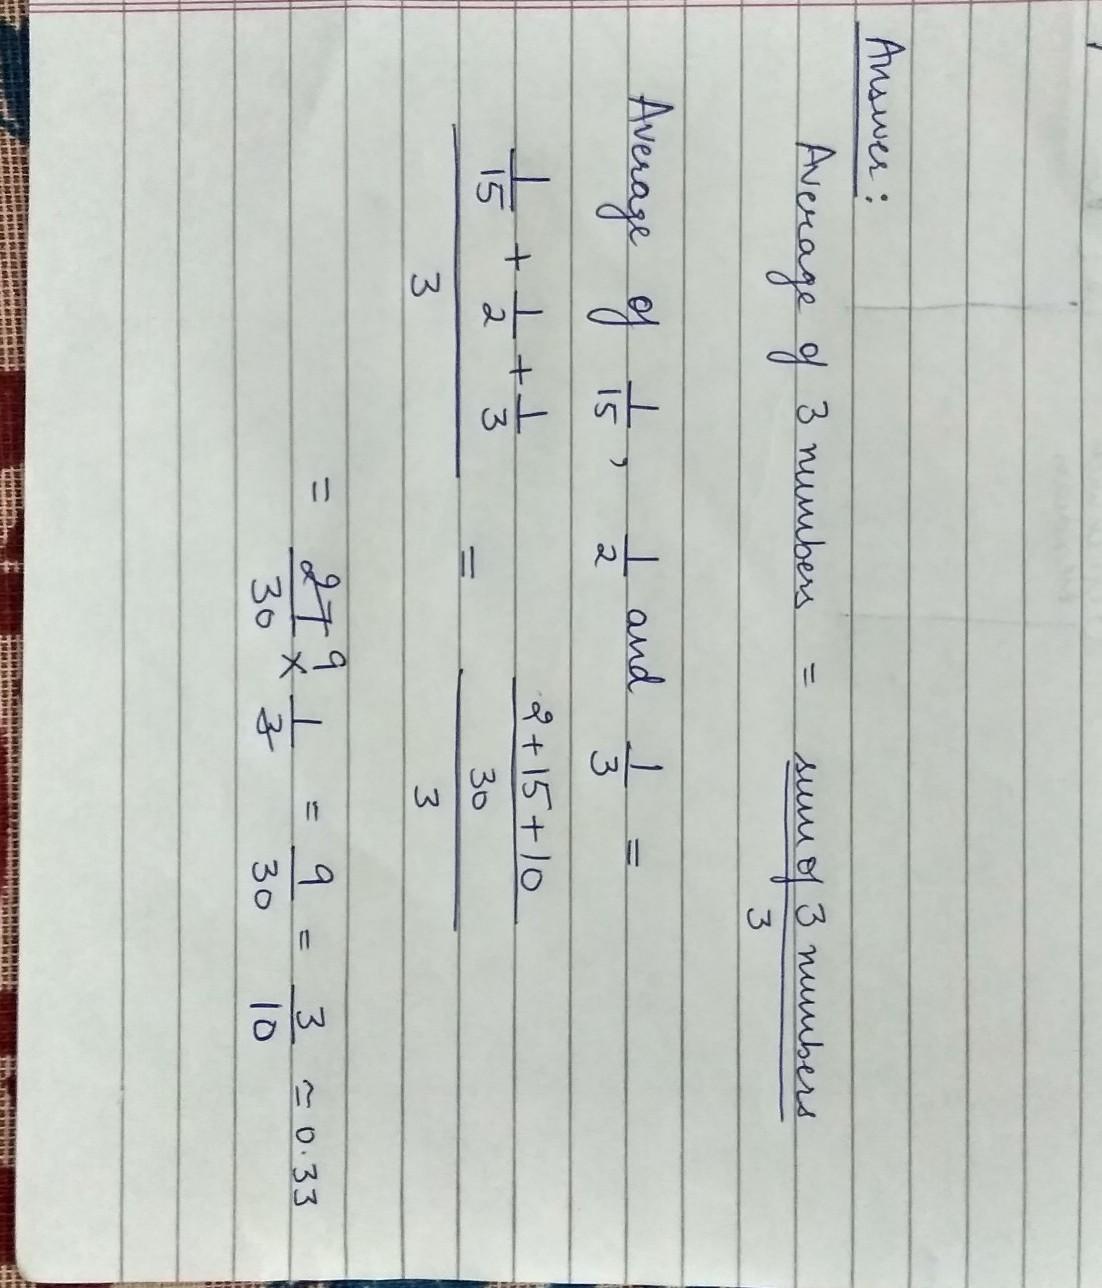 Answer:
Average of 3 numbers = sum of 3 numbers
3
Average of 1/15, 1/2 and 1/3 =
1/15 + 1/2 + 1/3 = 2+15+10
30
3 3
= 27/30 9 × 1/3 = 9/30 = 3/10 ≃ 0.33